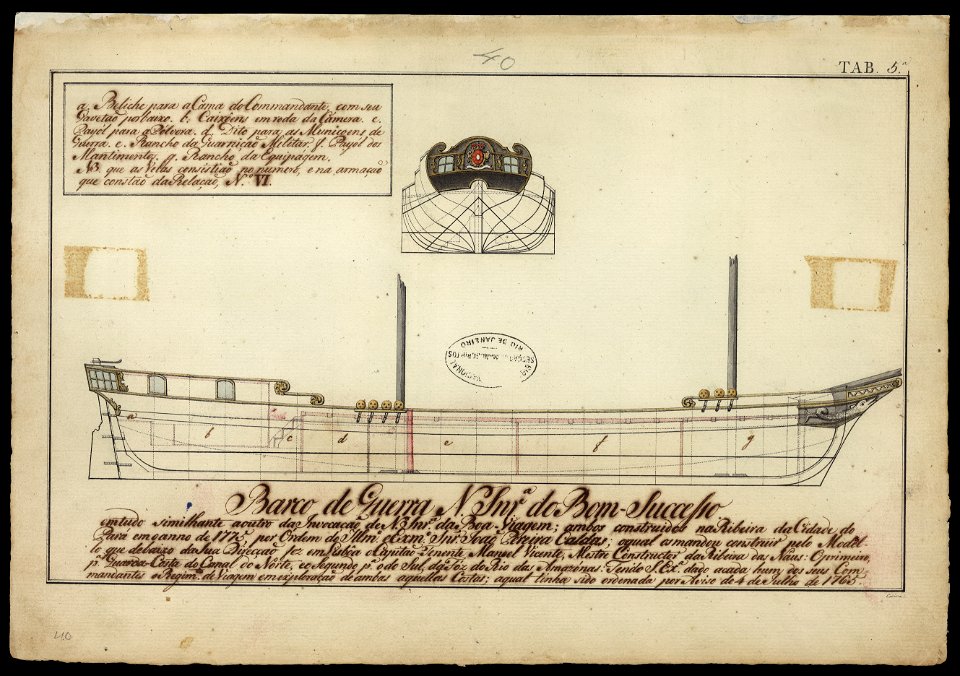 40
TAB. 5.ª
a. Beliche para a Cama do Commandante, com seu
Gavetaõ por baixo. b. Caixoens em roda da Camera. c.
Payol para a Polvora. d. Dito para as Municoens de
Guerra. e. Rancho da Guarniçaõ Militar. f. Payol dos
Mantimentos. g. Rancho da Equipagem.
NB. que as Velas consistiaõ no numero, e na armaçaõ
que constaõ da Relaçaõ, N.º VI.
RIO DE JANEIRO
a
b
c
d
e
f
g
Barco de Guerra N. Snr.ª do Bom-Successo
em tudo similhante a outro da Invocaçaõ de N. Snr.ª da Boa Viagem; ambos construidos na Ribeira da Cidade do
Pará em o anno de 1775, por Ordem do Illm.º e Exm.º Snr. Joaõ Pereira Caldas; o qual os mandou construir pelo Model-
lo que debaixo da sua Direcçaõ fez em Lisboa o Capitaõ Tenente Manuel Vicente, Mestre Constructor da Ribeira das Náus: O primeiro,
p.ª Guarda-Costa do Canal do Norte, e o Segundo p.ª o do Sul da foz do Rio das Amazonas: Tendo S. Ex.ª dado a cada hum dos seus Com-
mandantes o Regim.to de Viagem em exploraçaõ de ambas aquellas Costas; a qual tinha sido ordenada por Aviso de 4 de Julho de 1765.
40